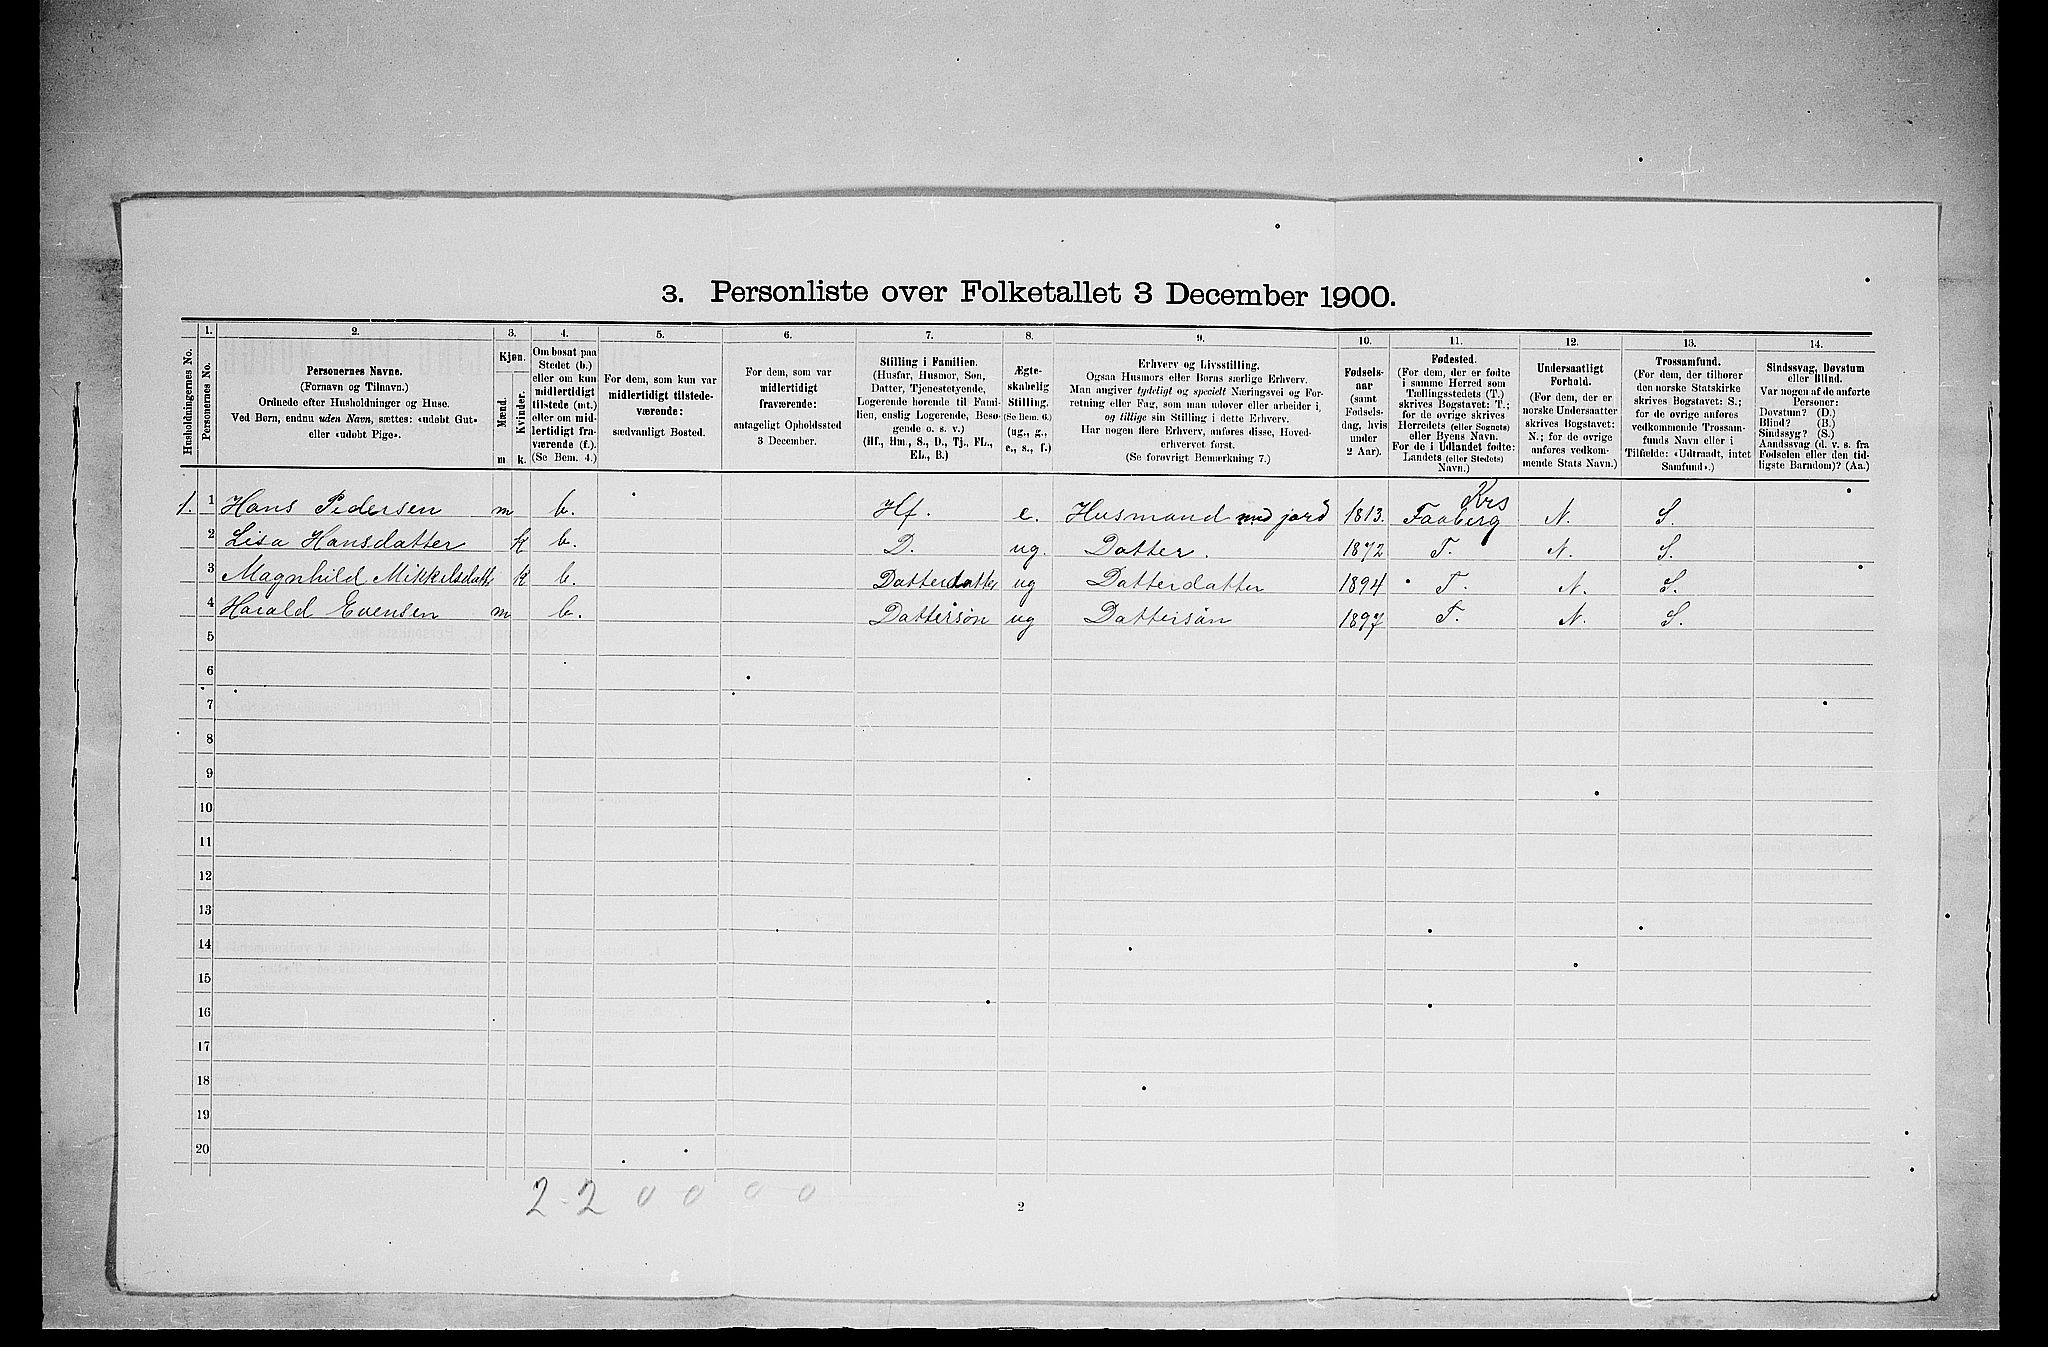 3. Personliste over Folketallet 3 December 1900.
Husholdningernes No.
1.
Personernes No.
2.
Personernes Navne.
(Fornavn og Tilnavn.)
Ordnede efter Husholdninger og Huse.
Ved Børn, endnu uden Navn, sættes: «udøbt Gut»
eller «udøbt Pige».
3.
Kjøn.
Mænd.
Kvinder.
m k.
4.
Om bosat paa
Stedet (b.)
eller om kun
midlertidigt
tilstede (mt.)
eller om mid-
lertidigt fra-
værende (f.).
(Se Bem. 4.)
5.
For dem, som kun var
midlertidigt tilstede-
værende:
sædvanligt Bosted.
6.
For dem, som var
midlertidigt
fraværende:
antageligt Opholdssted
3 December.
7.
Stilling i Familien.
(Husfar, Husmor, Søn,
Datter, Tjenestetyende,
Logerende hørende til Fami-
lien, enslig Logerende, Besø-
gende o. s. v.)
(Hf., Hm., S., D., Tj., FL.,
EL., B.)
8.
Ægte-
skabelig
Stilling.
(Se Bem. 6.)
(ug., g.,
e., s., f.)
9.
Erhverv og Livsstilling.
Ogsaa Husmors eller Børns særlige Erhverv.
Man angiver tydeligt og specielt Næringsvei og For-
retning eller Fag, som man udøver eller arbeider i,
og tillige sin Stilling i dette Erhverv.
Har nogen flere Erhverv, anføres disse, Hoved-
erhvervet først.
(Se forøvrigt Bemærkning 7.)
10.
Fødsels-
aar
(samt
Fødsels-
dag, hvis
under
2 Aar).
11.
Fødested.
(For dem, der er fødte
i samme Herred som
Tællingsstedets (T.)
skrives Bogstavet: T.;
for de øvrige skrives
Herredets (eller Sognets)
eller Byens Navn.
For de i Udlandet fødte:
Landets (eller Stedets)
Navn.)
12.
Undersaatligt
Forhold.
(For dem, der er
norske Undersaatter
skrives Bogstavet:
N.; for de øvrige
anføres vedkom-
mende Stats Navn.)
13.
Trossamfund.
(For dem, der tilhører
den norske Statskirke
skrives Bogstavet: S.;
for de øvrige anføres
vedkommende Trossam-
funds Navn eller i
Tilfælde: «Udtraadt, intet
Samfund».)
14.
Sindssvag, Døvstum
eller Blind.
Var nogen af de anførte
Personer:
Døvstum? (D.)
Blind? (B.)
Sindssyg? (S.)
Aandssvag (d. v. s. fra
Fødselen eller den tid-
ligste Barndom)? (Aa.)
1. 1 Hans Pedersen m b. Hf. e. Husmand med jord 1813. Faaberg Krs N. S.
2 Lisa Hansdatter k b. D. ug. Datter. 1872 T. N. S.
3 Magnhild Mikkelsdatt k b. Datterdatter ug Datterdatter 1894 T. N. S.
4 Harald Evensen m b. Dattersøn ug Dattersøn 1897 T. N. S.
5
6
7
8
9
10
11
12
13
14
15
16
17
18
19
20
2-2 0 0 0 0
2